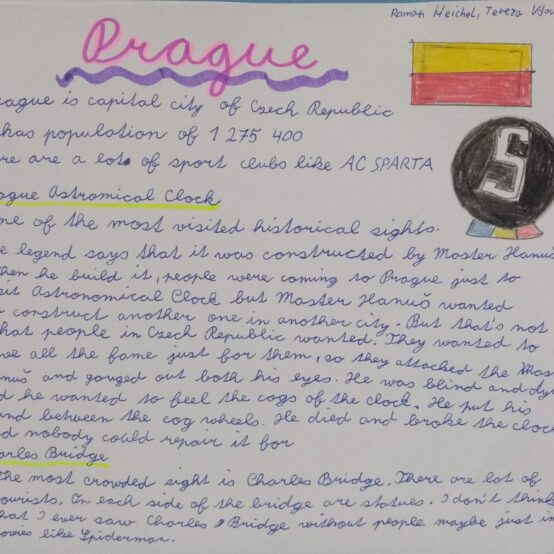 Roman Heichel, Tereza
Prague
rague is capital city of Czech Republic
has population of 1 275 400
re are a lot of sport clubs like AC SPARTA
S
ague Astromical Clock
ne of the most visited historical sights.
e legend says that it was constructed by Master Hanuš
hen he build it, people were coming to Prague just to
sit Astronomical Clock but Master Hanuš wanted
o construct another one in another city. But that's not
hat people in Czech Republic wanted. They wanted to
ve all the fame just for them, so they attacked the Mas
nuš and gouged out both his eyes. He was blind and dy
d he wanted to feel the cogs of the clock. He put his
and between the cog wheels. He died and broke the clock
nd nobody could repair it for
arles Bridge
The most crowded sight is Charles Bridge. There are lot of
ourists. On each side of the bridge are statues. I don't think
hat I ever saw Charles Bridge without people maybe just in
ovies like Spiderman.